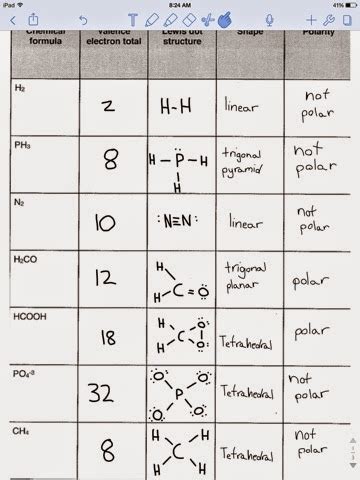 iPad
8:24 AM
91%
T
Chemical formula
Valence electron total
Lewis dot structure
Shape
Polarity
H₂
2
H-H
linear
not polar
PH₃
8
H-P-H
H
trigonal pyramid
not polar
N₂
10
:N≡N:
linear
not polar
H₂CO
12
H
H
C=O
trigonal planar
polar
HCOOH
18
H
H
C
O
O
Tetrahedral
polar
PO₄⁻³
32
O
O
P
O
O
Tetrahedral
not polar
CH₄
8
H
H
C
H
H
Tetrahedral
not polar